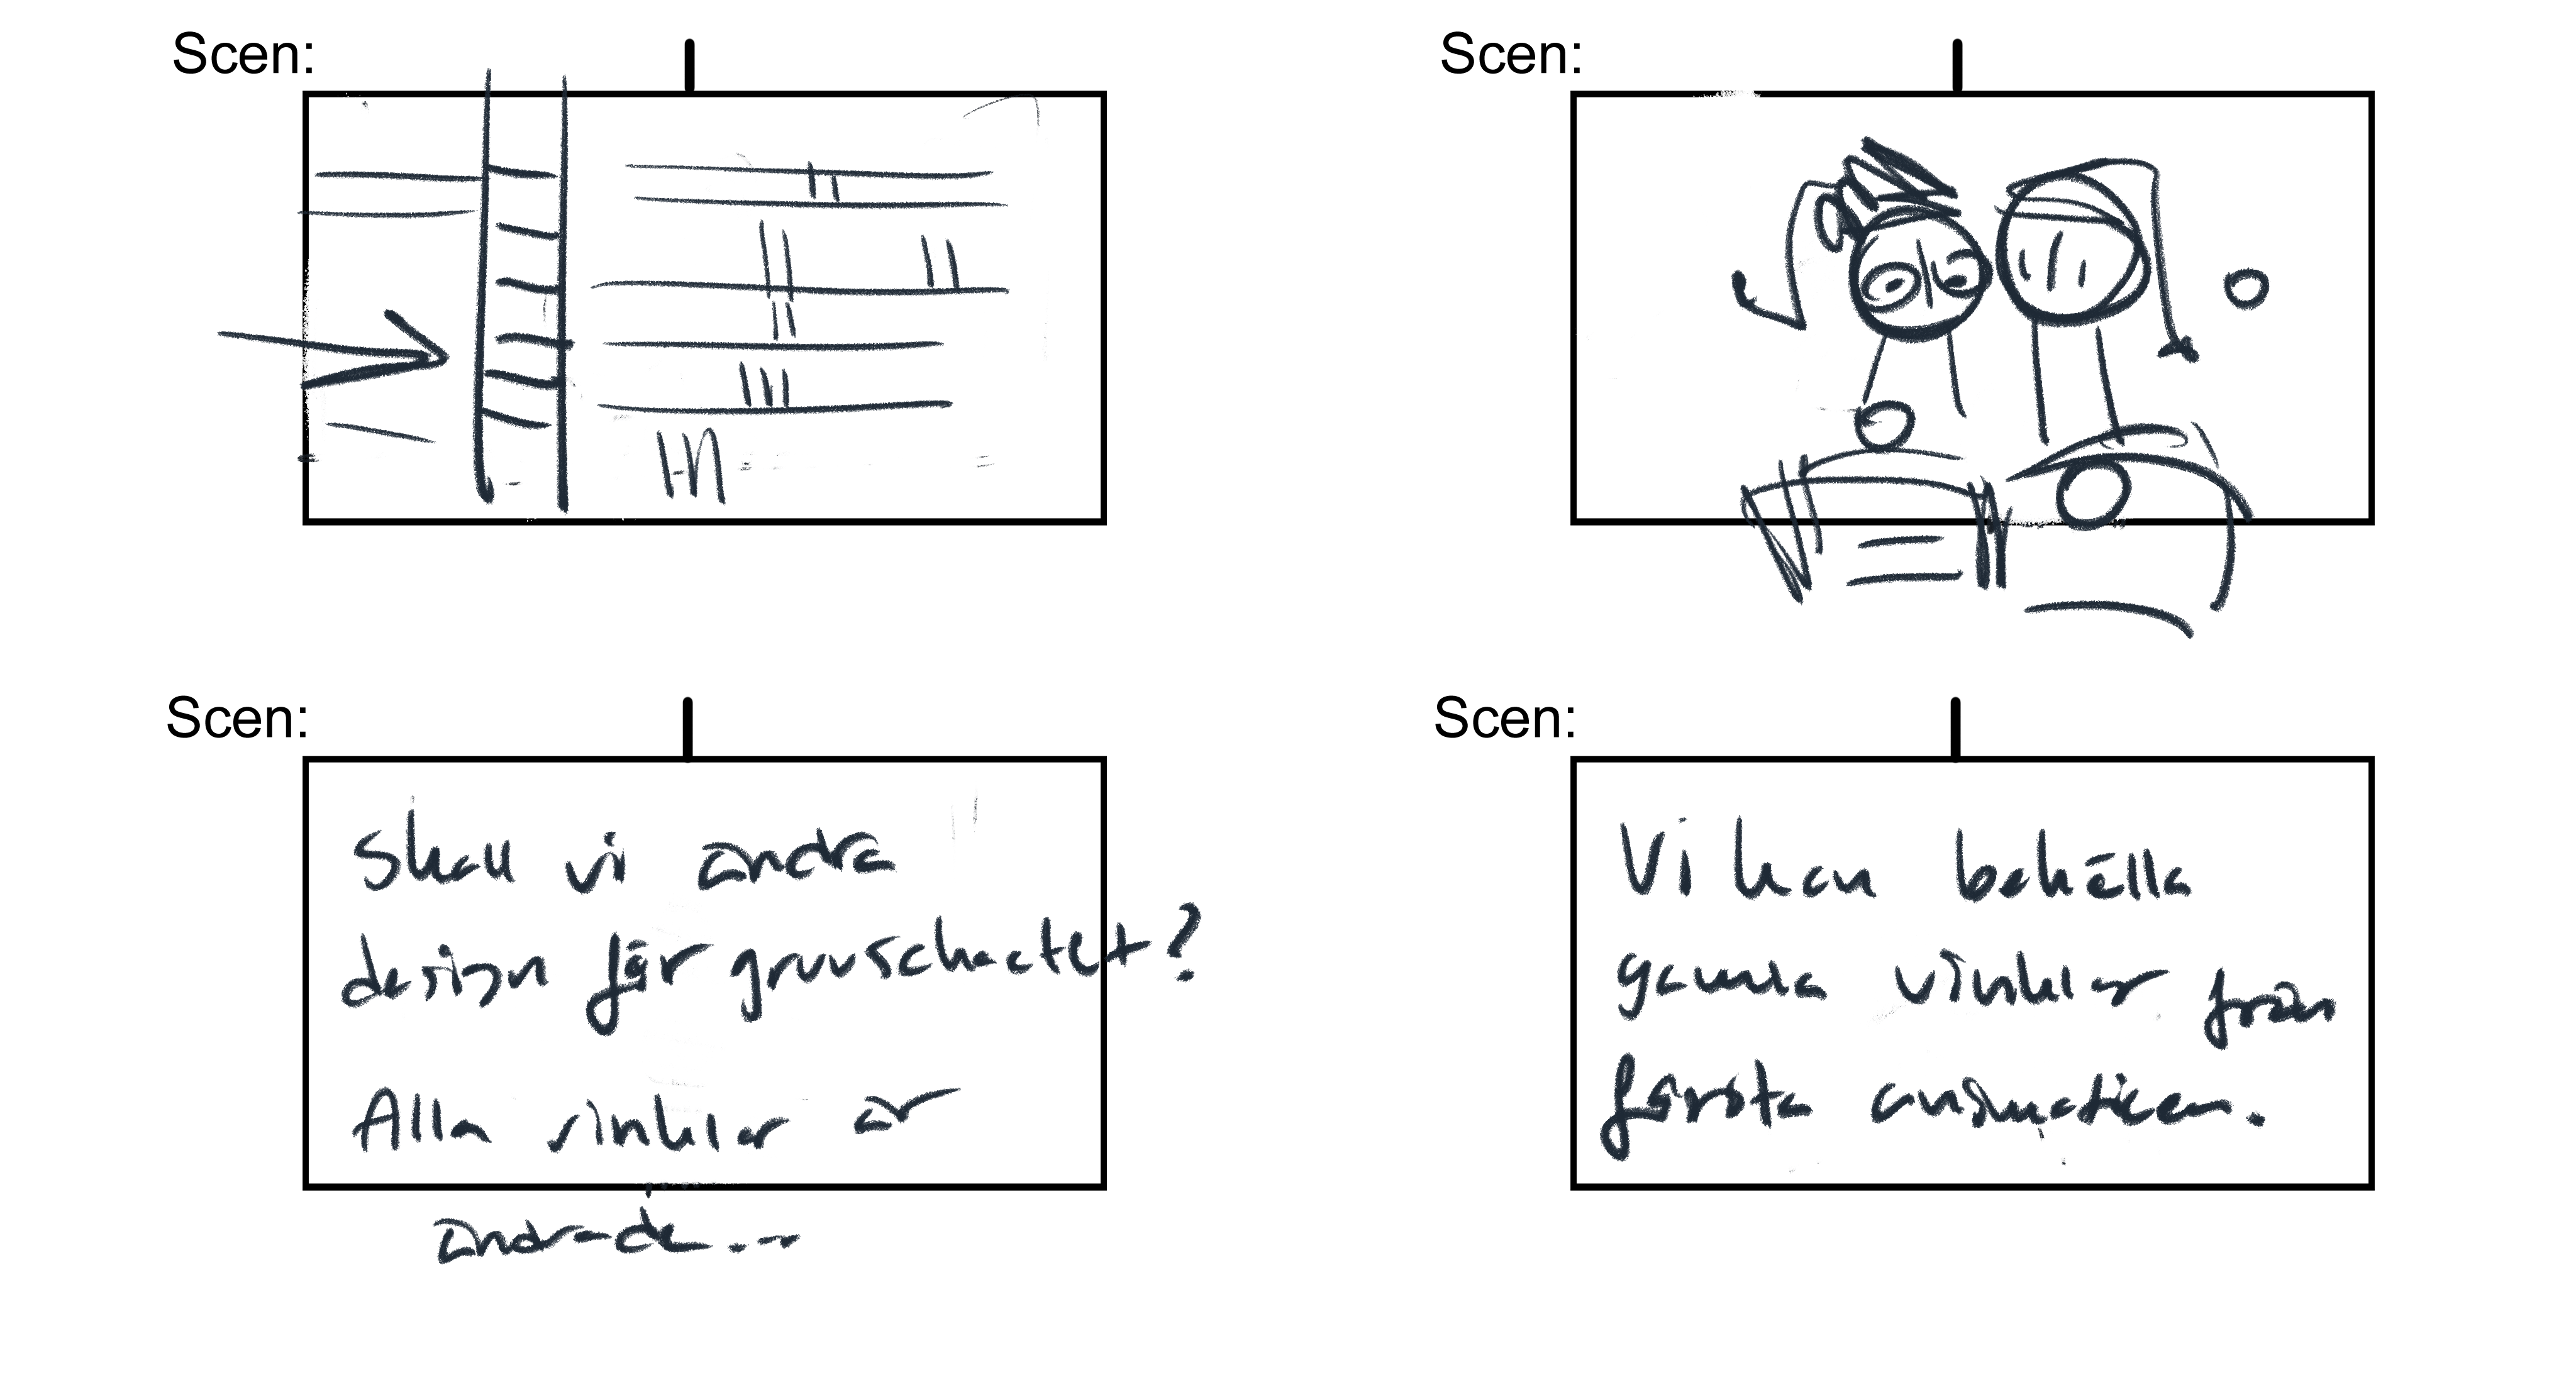 Scen:
Scen:
Scen:
Skall vi ändra
design för gruvschactet?
Alla vinklar är
ändrade...
Scen:
Vi kan behålla
gamla vinklar från
första animaticen.